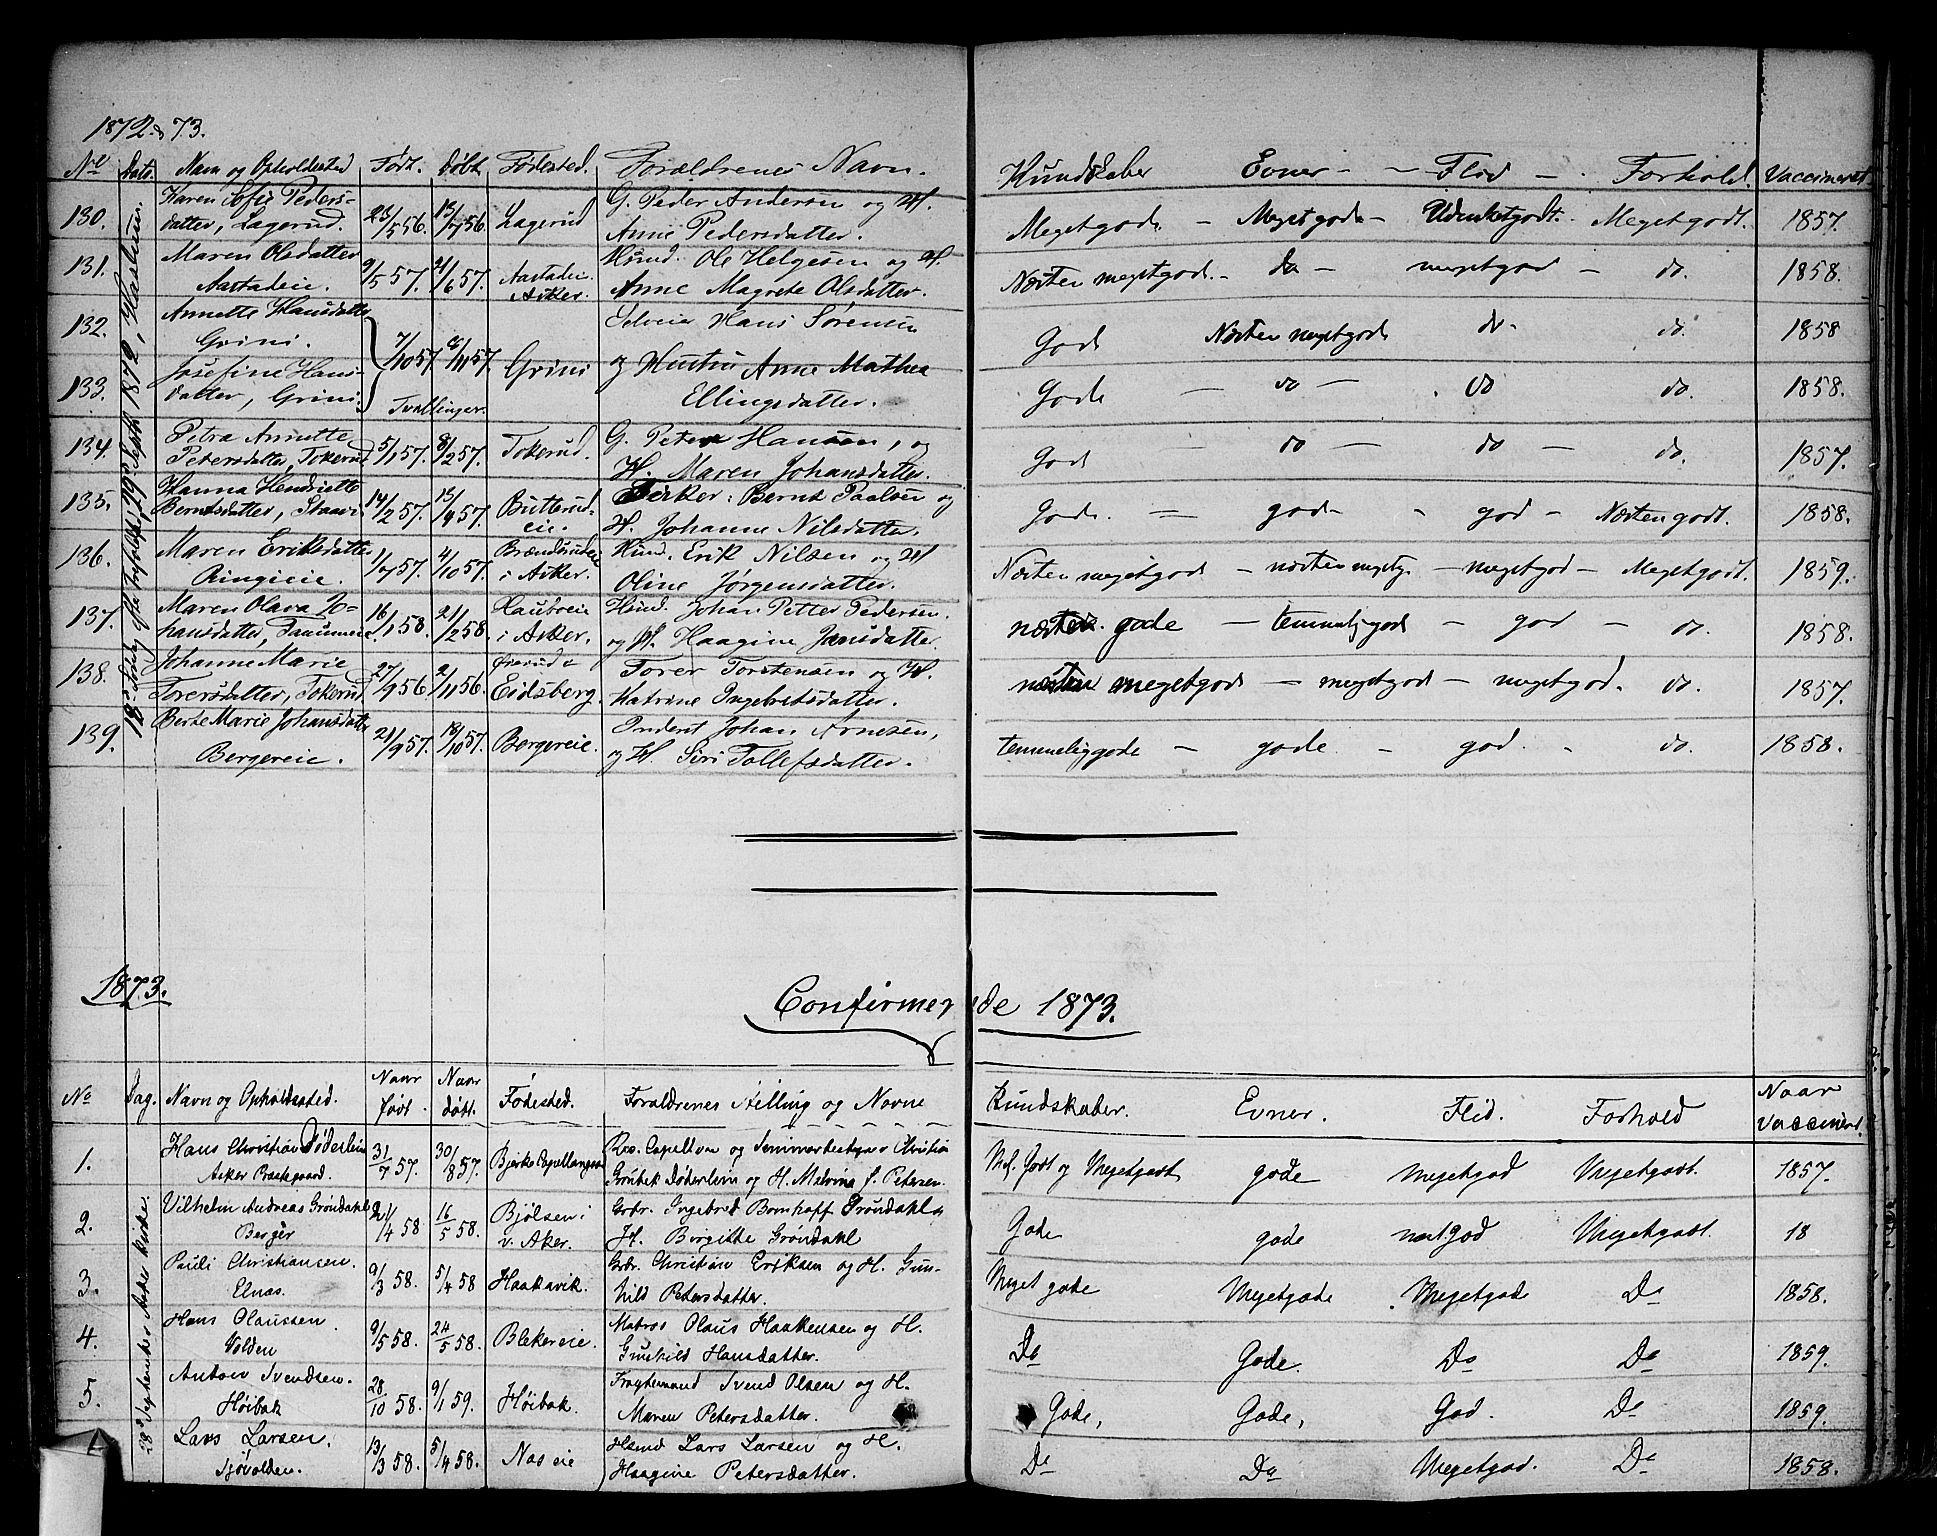 1872 & 73.
No Dato. Navn og Opholdssted Født. Døbt Fødested. Forældrenes Navn. Kundskaber Evner - - Flid - . Forhold. Vaccineret
18de Søndag efter Trefoldigh. 19de Septbr. 1872, Haslum.
130. Karen Sofie Pedersdatter, Lagerud. 23/5 56 13/7 56. Lagerud G. Peder Andersen og H. Anne Pedersdatter. Megetgode - Megetgode - Udmerketgodt. Megetgodt. 1857.
131. Maren Olsdatter Aastadeie. 9/5 57. 21/6 57. Aastadeie. Asker. Huusd. Ole Helgesen og H. Anne Magrete Olsdatter. Næsten megetgode. - do - megetgod - do. 1858.
132. Annette Hansdatter Grini. 7/10 57 8/11 57. Grini Selveier Hans Sørensen Gode Næsten megetgode do. do. 1858
133. Josefine Hansdatter, Grini. Tvillinger. og Hustru Anne Mathea Ellingsdatter. Gode - do - do do. 1858.
134. Petra Annette Petersdatter, Tokerud 5/1 57. 8/2 57. Tokerud. G. Peter Hansen, og H. Maren Johansdatter. Gode - do - do - do. 1857.
135. Hanna Hendriette Berntsdatter, Staavi 14/2 57. 13/4 57. Butterudeie. Bernt Paalsen og H. Johanne Nilsdatter. Gode. - gode - god - Næsten godt. 1858.
136. Maren Eriksdatter Ringieie. 1/7 57. 4/10 57. i Asker. Huusd. Erik Nilsen og H Oline Jørgensdatter. Næsten megetgode - næsten megetg. - megetgod - Megetgodt. 1859.
137. Maren Olava Johansdatter, 16/1 58. 21/2 58. i Asker. Huusd. Johan Petter Pedersen. og H. Haagine Jansdatter. næsten gode - temmelig gode - god - do. 1858.
138. Johanne Marie Torersdatter, Tokerud 27/9 56 2/11 56. Eidsberg. Torer Torstensen og H. Katrine Ingebretsdatter. næsten megetgode - megetgode - megetgod. do. 1857.
139. Berte Marie Johansdatter Bergereie. 21/9 57. 18/10 57. Bergereie. Inderst Johan Arnesen, og H. Siri Tollefsdatter. temmeliggode - gode - god - do. 1858.
1873. Confirmerede 1873.
No Dag. Navn og Opholdssted. Naar født. Naar døbt. Fødested. Forældrenes Stilling og Navne Kundskaber. Evner. Flid. Forhold Naar Vaccineret.
28de September Asker Kirke.
1. Hans Christian Døderlein Asker Præstegaard 31/7 57. 30/8 57. Res. Capellan og Seminariebestyrer Christian Døderlein og H. Melvina f. Petersen. Megetgodt gode Megetgod Megetgodt. 1857.
2. Vilhelm Andreas Grøndahl Berger 21/4 58 16/5 58. Bjølsen i v. Aker. Gbr. Ingebred Grøndahl og H. Birgitte Grøndahl Gode gode megetgod Megetgodt. 18
3. Pauli Christiansen. Elnæs. 9/3 58. 5/4 58 Haakavik. Gbr. Christian Eriksen og H. Gunhild Petersdatter. Meget gode Megetgode Megetgode Do 1858.
4. Hans Olaussen Volden 9/5 58. 24/5 58. Blekereie. Matros Olaus Haakensen og H. Gunhild Hansdatter. Do Gode. Do Do 1859.
5. Anton Svendsen. Høibak 28/10 58. 9/1 59. Høibak. Svend Olsen og H. Maren Petersdatter. Gode, Gode, God. Do 1859.
Lars Larsen. Sjøvolden. 13/3 58. 5/4 58. Næseie Husmd Lars Larsen og H. Haagine Petersdatter. Do Do Megetgod. Do 1858.